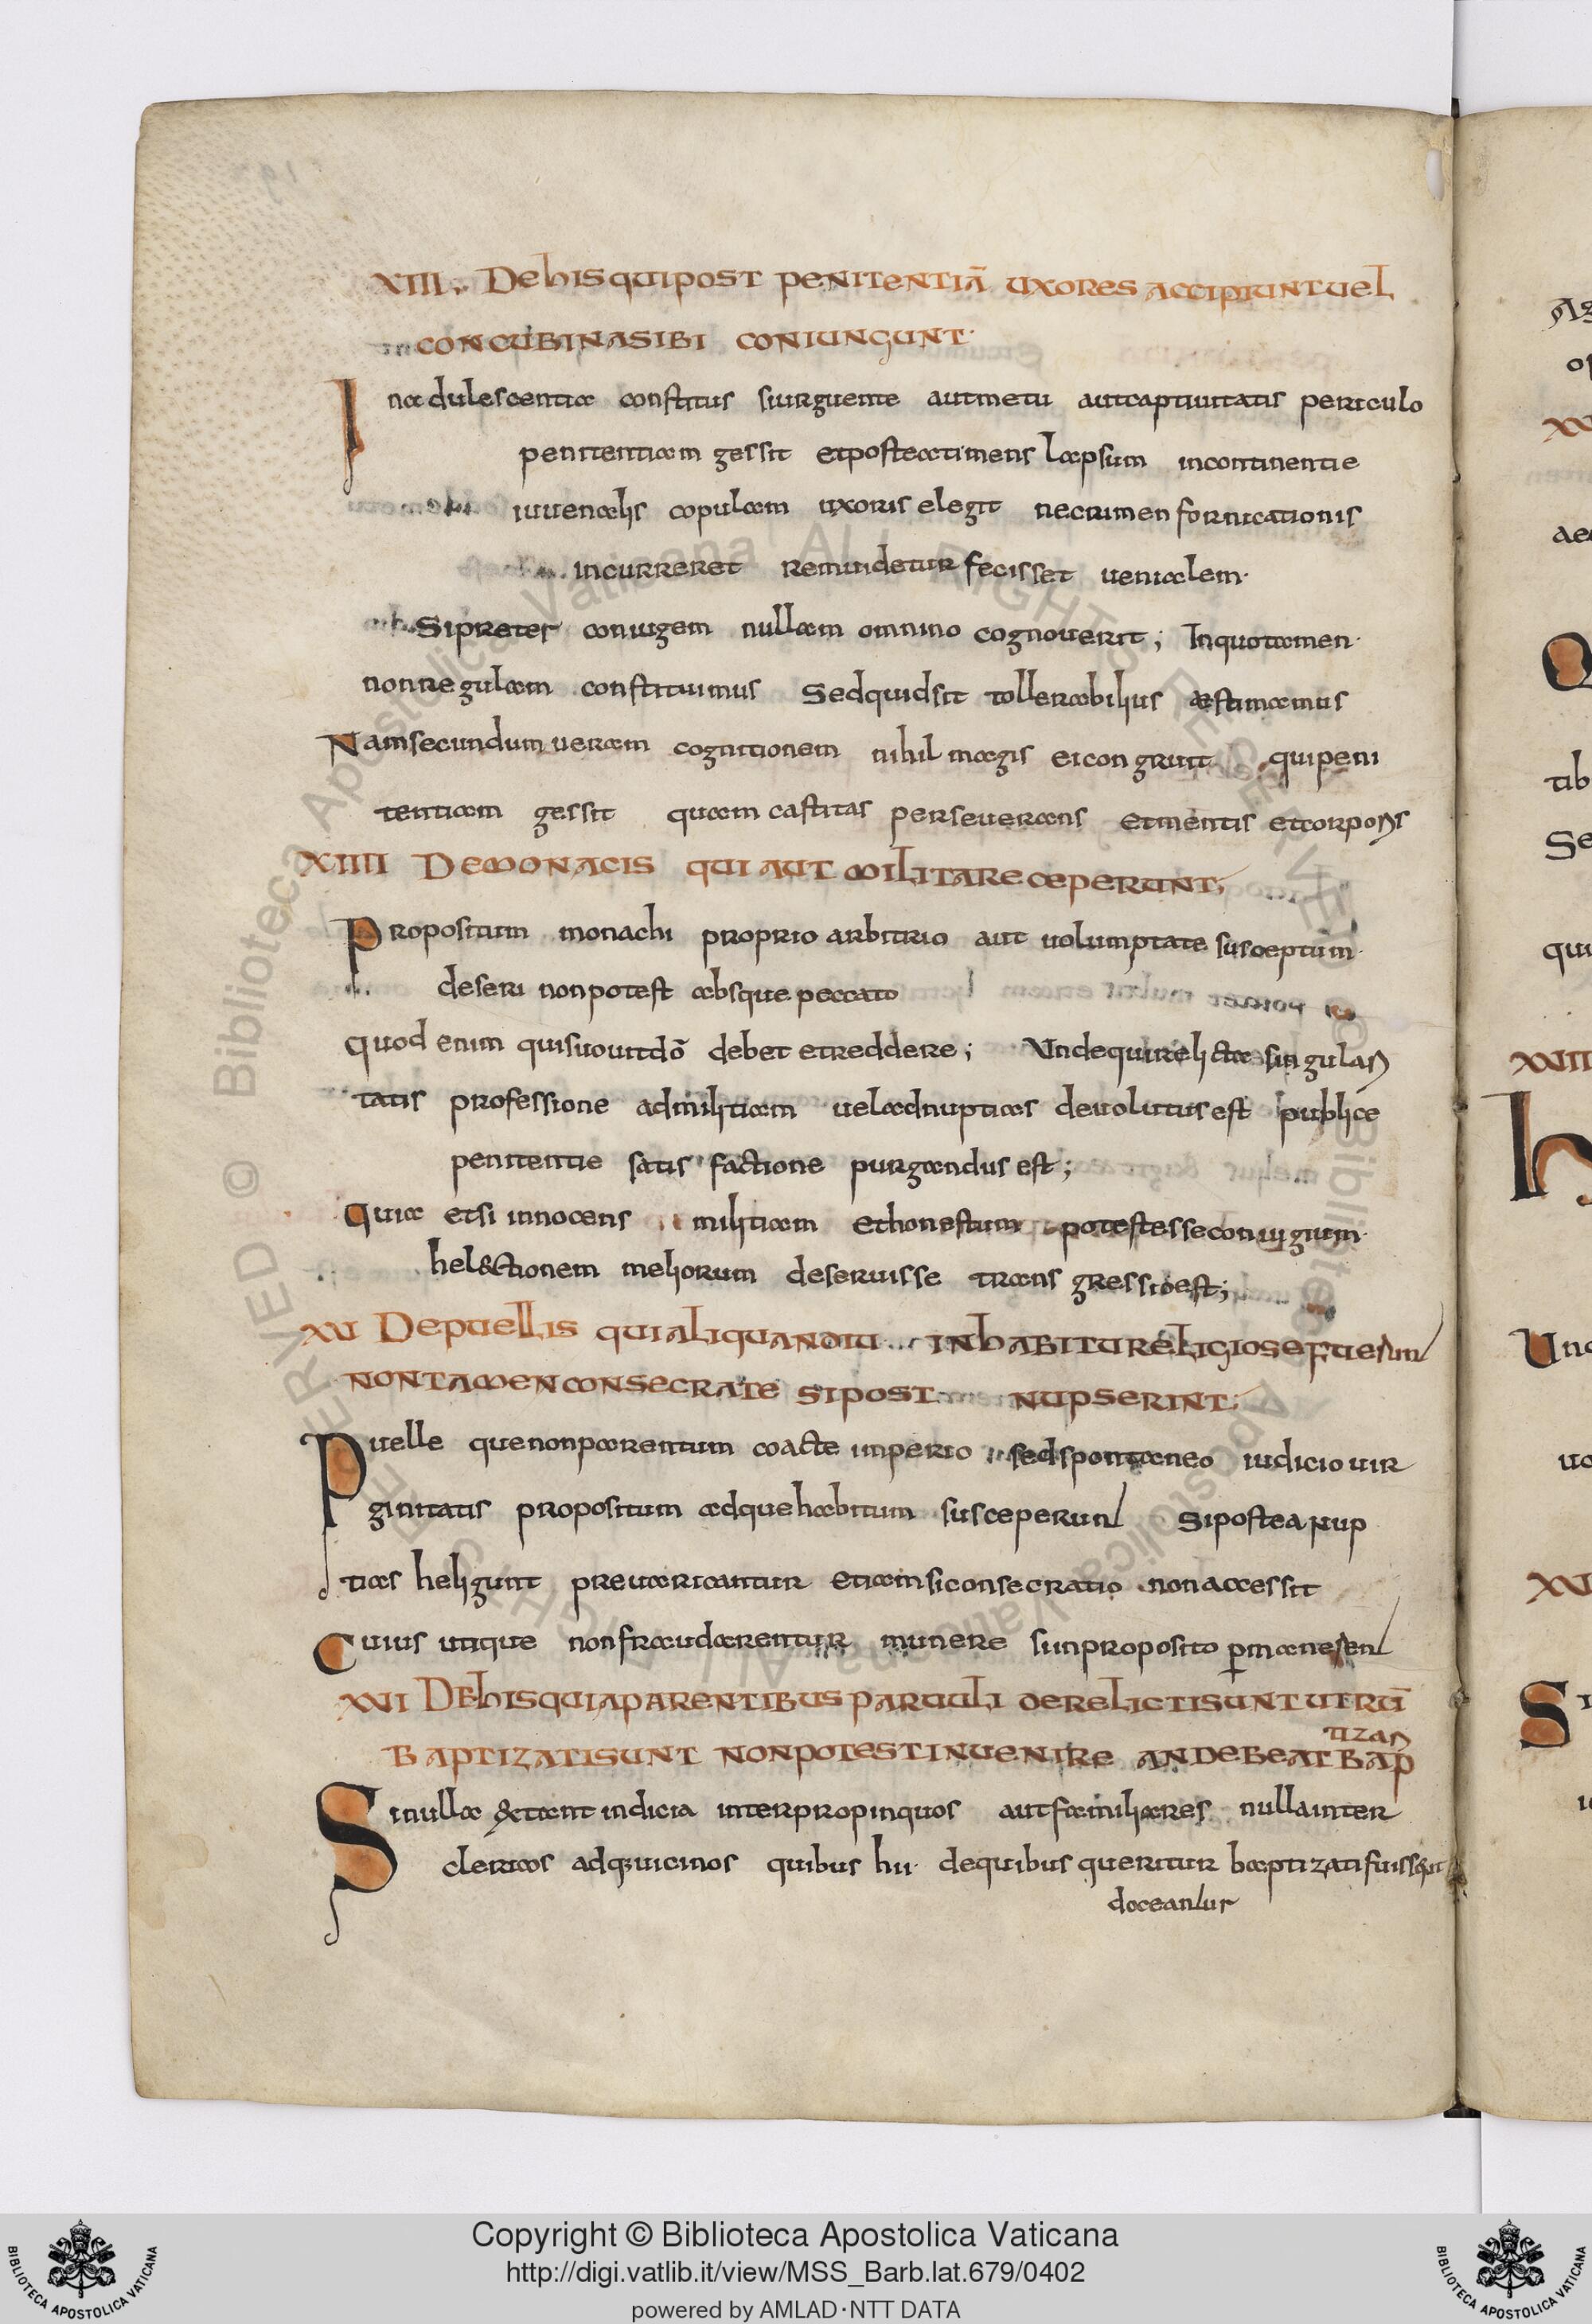 XIII. De his qui post penitentiā uxores accipiunt uel
concubinas sibi coniungunt·
In adulescentia constitus siurguente aut metu aut captiuitatis periculo
penitentiam gessit et postea timens lapsum incontinentie
iuuenalis copulam uxoris elegit ne crimen fornicationis
incurreret rem uidetur fecisset uenialem·
Si preter coniugem nullam omnino cognouerit; In quo tamen·
non regulam constituimus Sed quid sit tollerabilius æstimamus
Nam secundum ueram cognitionem nihil magis ei congruit qui peni
tentiam gessit quam castitas perseuerans et mentis et corporis
XIIII De monacis qui aut militare ceperunt;
Propositum monachi proprio arbitrio aut uolumptate susceptum·
deseri non potest absque peccato
quod enim quis uouit dō debet et reddere; Unde qui relicta singulari
tatis professione ad militiam uel ad nuptias deuolutus est publice
penitentie satis factione purgandus est;
Quia etsi innocens militiam et honestum potest esse coniugium·
helectionem meliorum deseruisse trans gressio est;
XV De puellis qui aliquandiu in habitu religiose fuerunt
non tamen consecrate si post nupserint;
Puelle que non parentum coacte imperio sed spontaneo iudicio uir
ginitatis propositum adque habitum susceperunt Si postea nup
tias heligunt preuaricantur etiam si consecratio non accessit
Cuius utique non fraudarentur munere sun proposito ꝑmanerent
XVI De his qui a parentibus paruuli derelicti sunt utrū
baptizati sunt non potest inuenire an debeat bap
tizari
Si nulla extant indicia inter propinquos aut familiares nulla inter
clericos adqꝫ uicinos quibus hii· de quibus queritur baptizati fuisse
doceantur
Copyright © Biblioteca Apostolica Vaticana
http://digi.vatlib.it/view/MSS_Barb.lat.679/0402
powered by AMLAD·NTT DATA
BIBLIOTECA APOSTOLICA VATICANA
BIBLIOTECA APOSTOLICA VATICANA